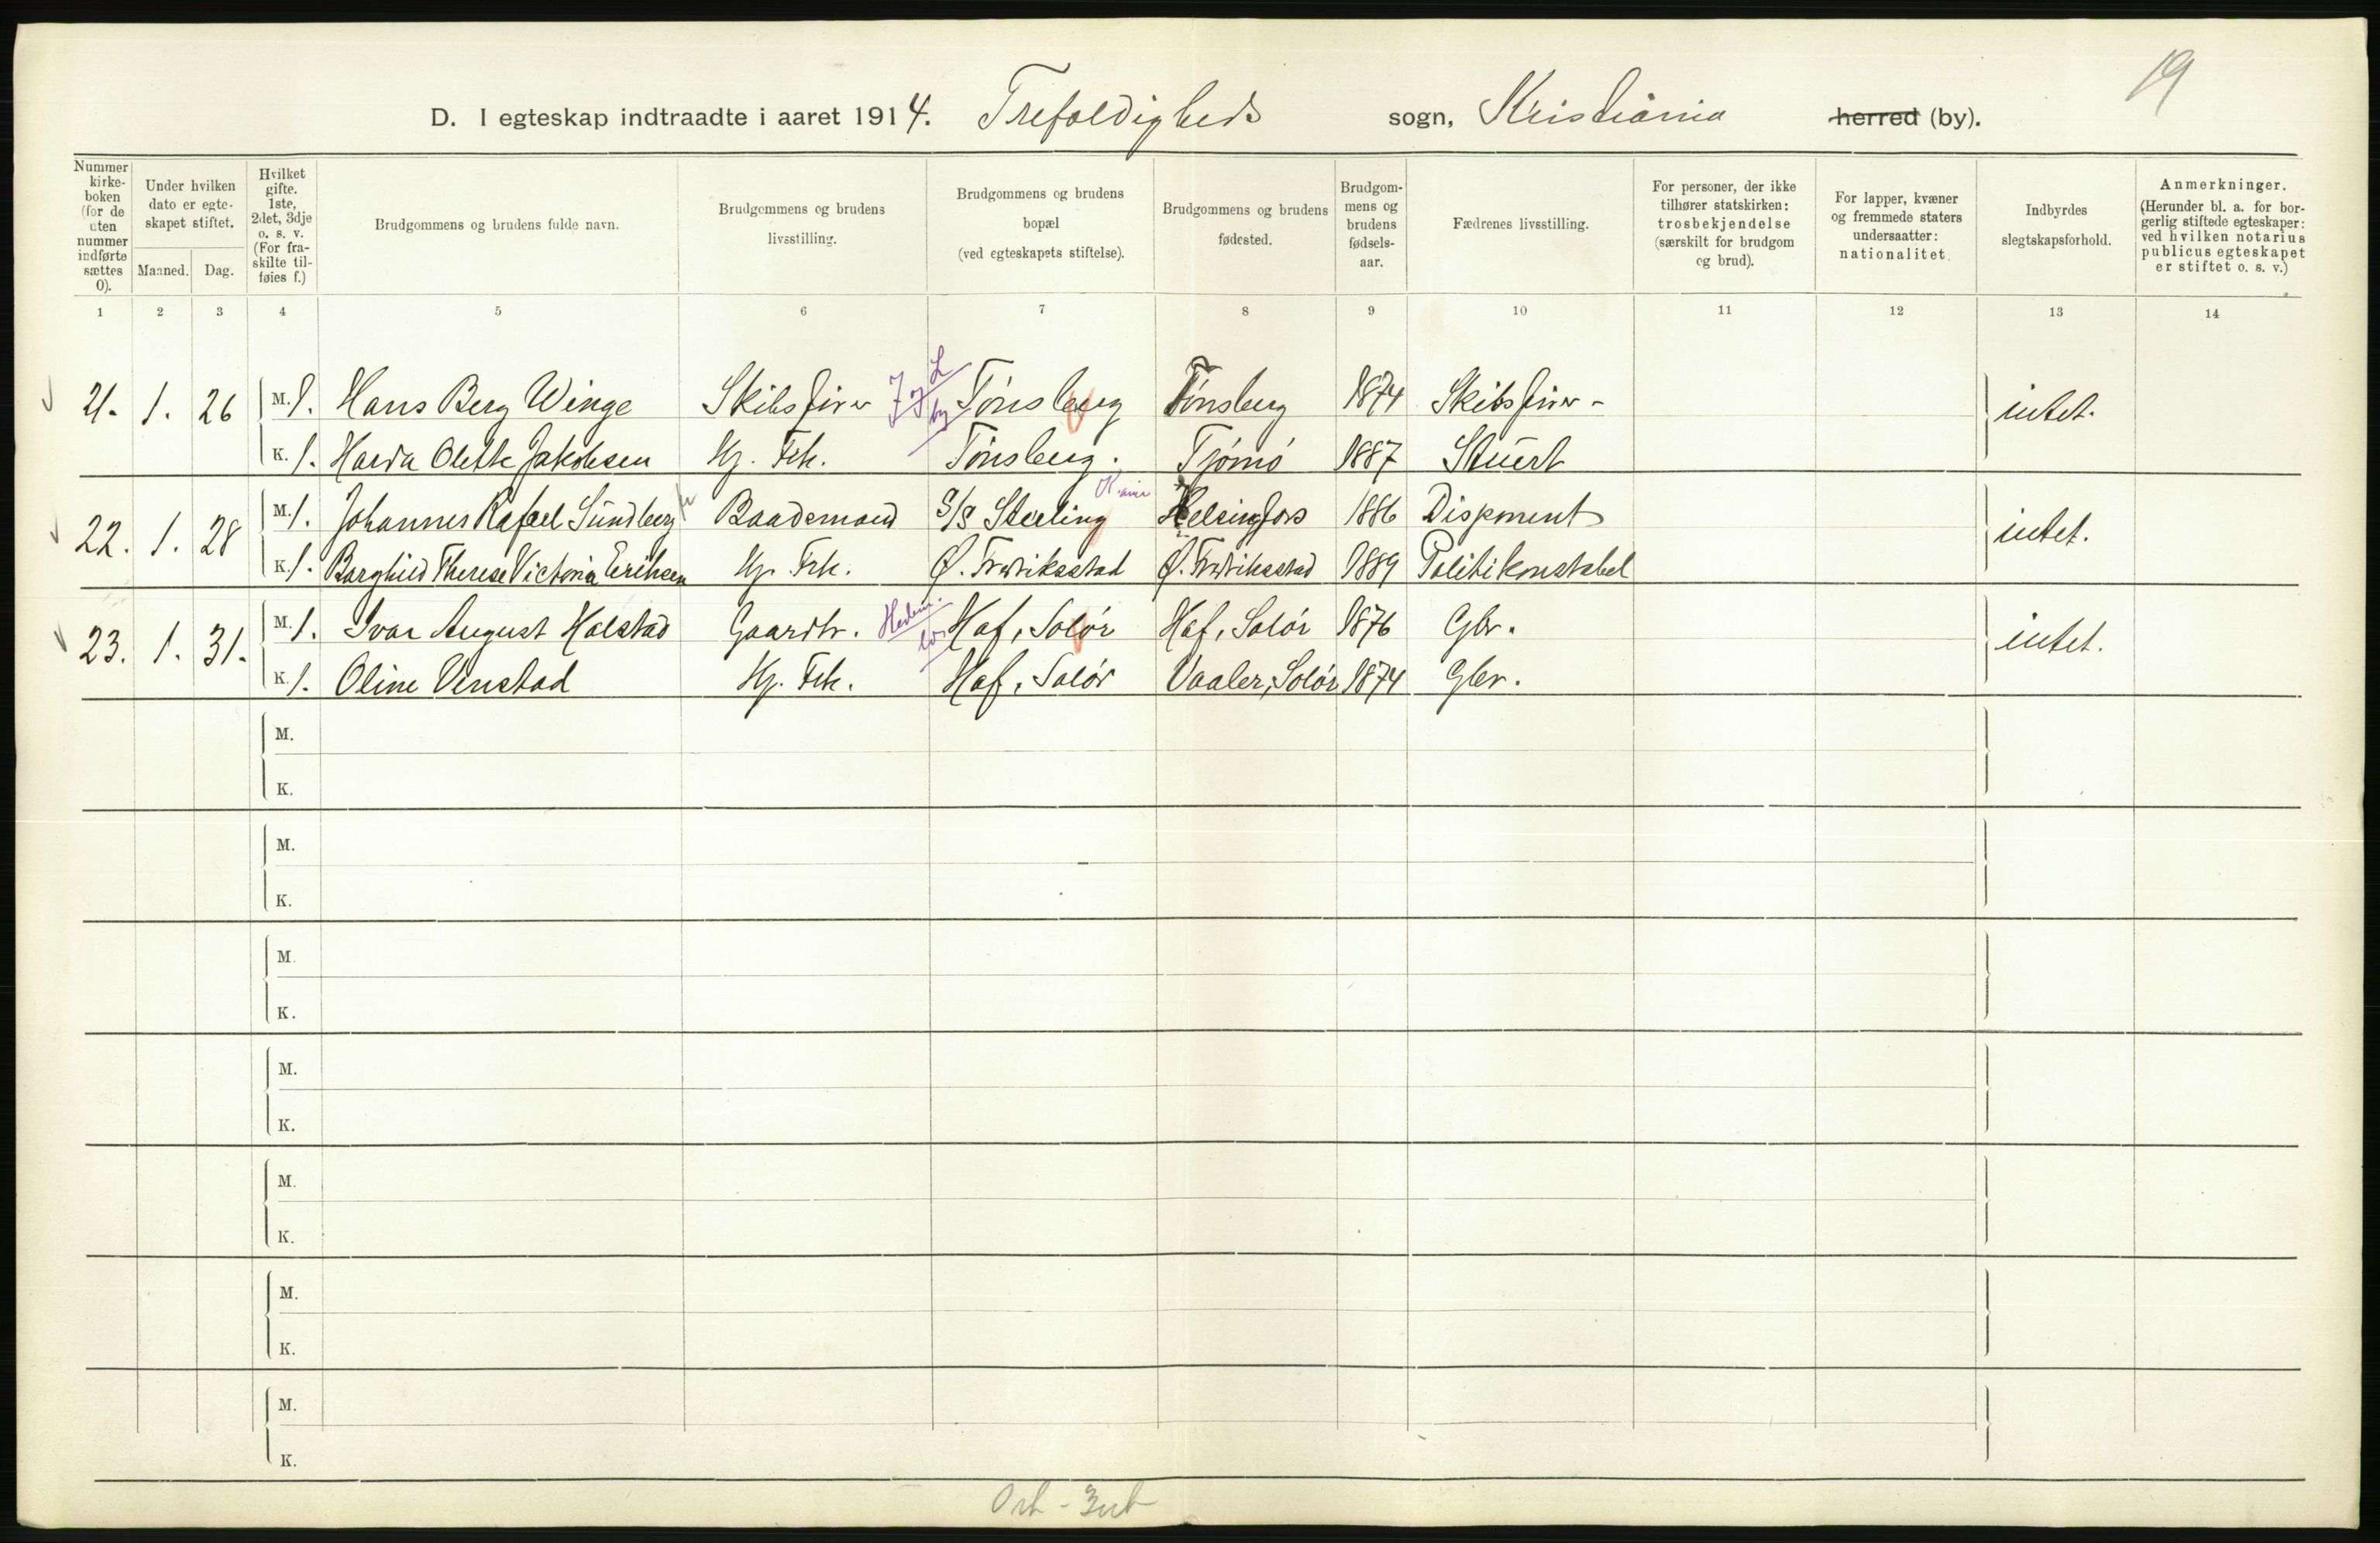 19
D. I egteskap indtraadte i aaret 1914. Trefoldigheds sogn, Kristiania herred (by).
Nummer kirkeboken (for de uten nummer indførte sættes 0).
Under hvilken dato er egteskapet stiftet.
Maaned. Dag.
Hvilket gifte. 1ste, 2det, 3dje o. s. v. (For fraskilte tilføies f.)
Brudgommens og brudens fulde navn.
Brudgommens og brudens livsstilling.
Brudgommens og brudens bopæl (ved egteskapets stiftelse).
Brudgommens og brudens fødested.
Brudgommens og brudens fødselsaar.
Fædrenes livsstilling.
For personer, der ikke tilhører statskirken: trosbekjendelse (særskilt for brudgom og brud).
For lapper, kvæner og fremmede staters undersaatter: nationalitet.
Indbyrdes slegtskapsforhold.
Anmerkninger. (Herunder bl. a. for borgerlig stiftede egteskaper: ved hvilken notarius publicus egteskapet er stiftet o. s. v.)
1 2 3 4 5 6 7 8 9 10 11 12 13 14
21. 1. 26 M. 1. Hans Berg Winge Skibsfører J og L by Tønsberg Tønsberg 1874 Skibsfører - intet.
K. 1. Olette Jakobsen Hj. Frk. Tønsberg. Tjømø 1887 Stuert
22. 1. 28 M. 1. Johannes Rafael Sundberg Baadsmand S/S Sterling K.ania Helsingfors 1886 Disponent intet.
K. 1. Borghild Therese Victoria Eriksen Hj. Frk. Ø. Fredriksstad Ø. Fredriksstad 1889 Politikonstabel
23. 1. 31. M. 1. Ivar August Halstad Gaardbr. Hedm. Hof, Solør Hof, Solør 1876 Gbr. intet.
K. 1. Oline Venstad Hj. Frk. Hof, Solør Vaaler, Solør 1874 Gbr.
M.
K.
M.
K.
M.
K.
M.
K.
M.
K.
M.
K.
M.
K.